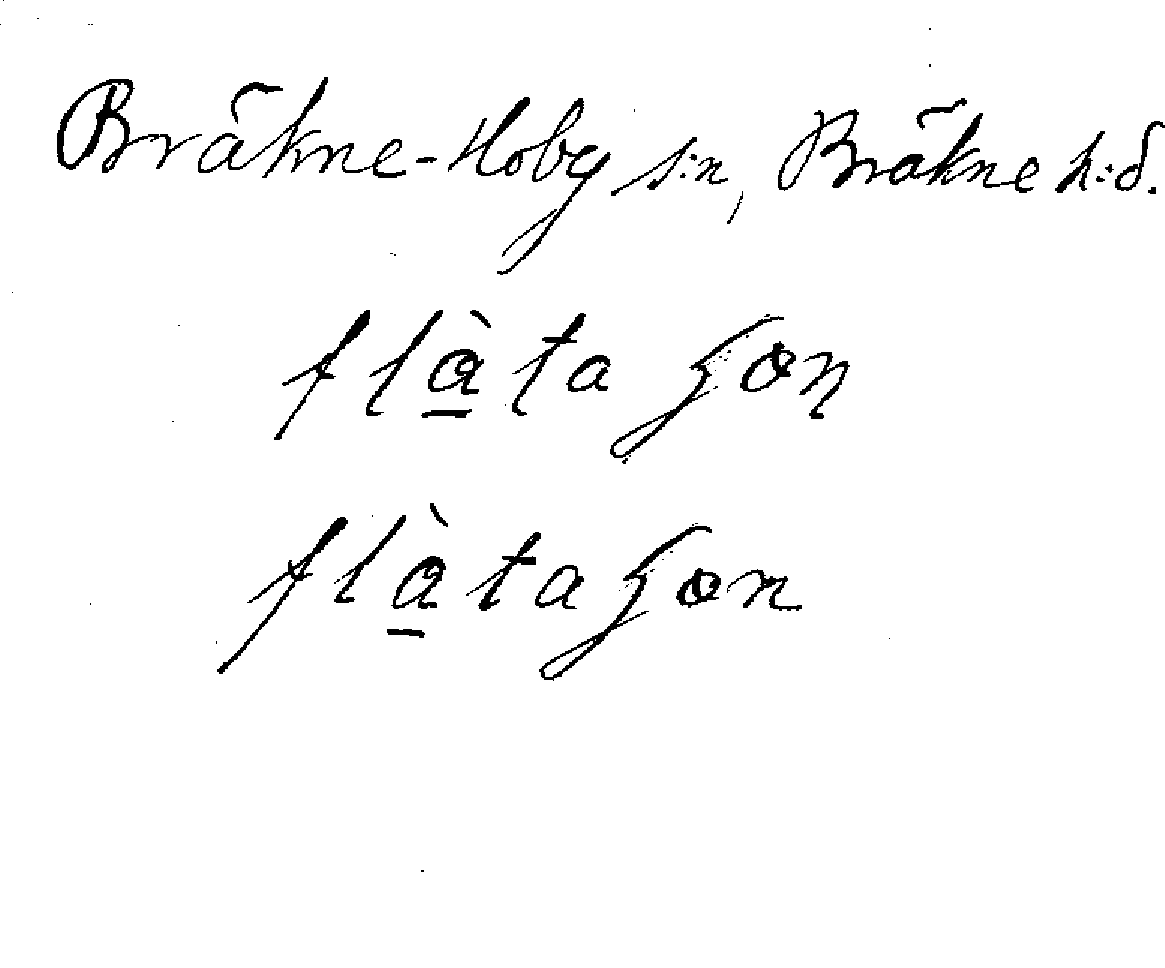 Bräkne-Hoby s:n, Bräkne h:d.
flàta gon
flàtagon